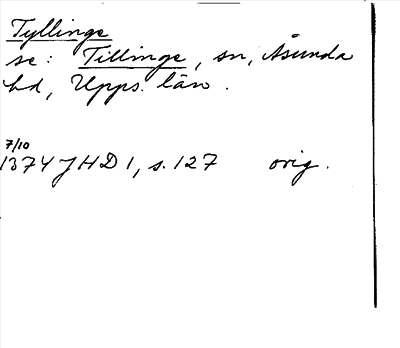 Tyllinge
se: Tillinge, sn, Åsunda
hd, Upps. län.
7/10
1374 JHD 1, s. 127 orig.